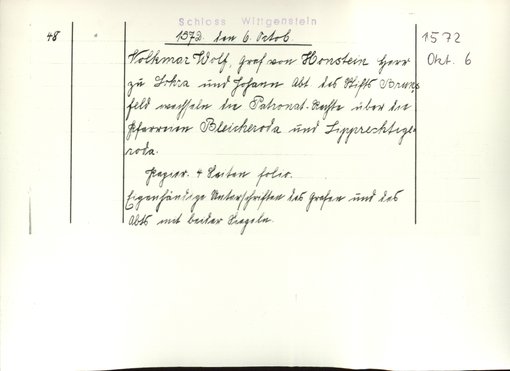 Schloss Wittgenstein
48
1572. den 6. Octob.
1572
Okt. 6
Volkmar Wolf, Graf von Honstein Herr
zu Lohra und Johann Abt des Stifts
feld wechseln die Patronat-Rechte über die
Pfarreien Bleicheroda und Lipprechtige-
roda.
Papier. 4 Seiten folio.
Eigenhändige Unterschriften des Grafen und des
Abts mit beider Siegeln.